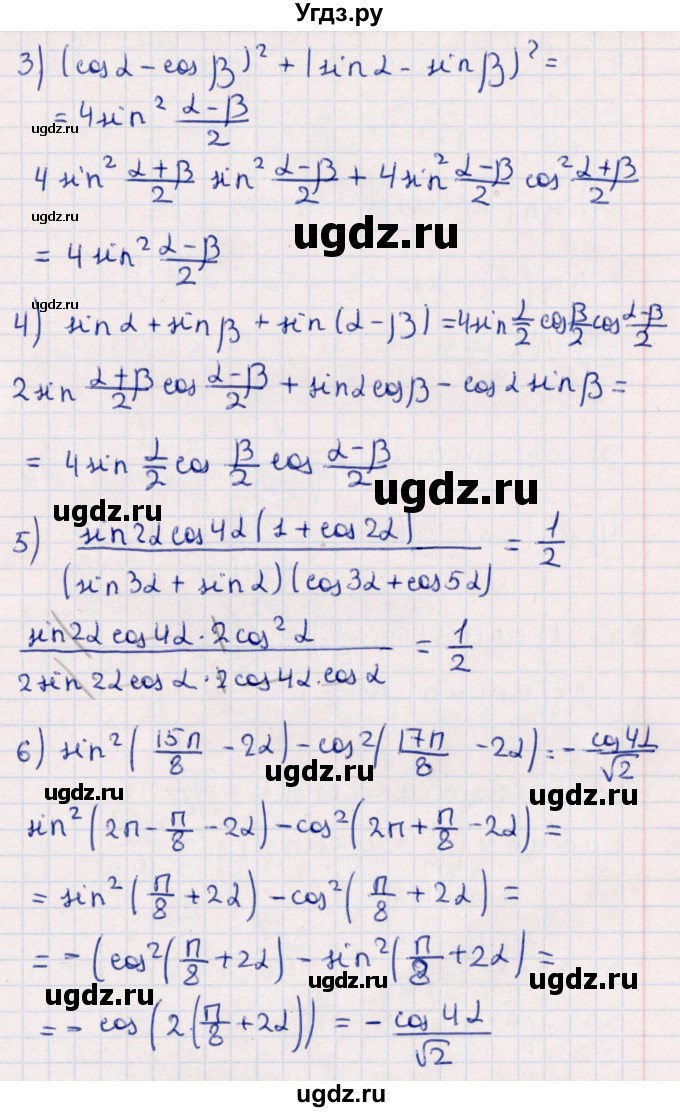 Угдз.ру
3) (cos α − cos β)² + (sin α − sin β)² =
= 4 sin² (α−β)/2
ugdz.ru
4 sin² (α+β)/2 sin² (α−β)/2 + 4 sin² (α−β)/2 cos² (α+β)/2
ugdz.ru
ugdz.ru
= 4 sin² (α−β)/2
ugdz.ru
4) sin α + sin β + sin (α − β) = 4 sin α/2 cos β/2 cos (α−β)/2
2 sin (α+β)/2 cos (α−β)/2 + sin α cos β − cos α sin β =
= 4 sin α/2 cos β/2 cos (α−β)/2
ugdz.ru
ugdz.ru
5) sin 2α cos 4α (1 + cos 2α) / (sin 3α + sin α)(cos 3α + cos 5α) = 1/2
sin 2α cos 4α · 2 cos² α / 2 sin 2α cos α · 2 cos 4α · cos α = 1/2
6) sin² (15π/8 − 2α) − cos² (17π/8 − 2α) = − cos 4α/√2
ugdz.ru
ugdz.ru
ugdz.ru
sin² (2π − π/8 − 2α) − cos² (2π + π/8 − 2α) =
= sin² (π/8 + 2α) − cos² (π/8 + 2α) =
= − (cos² (π/8 + 2α) − sin² (π/8 + 2α) =
ugdz.ru
ugdz.ru
ugdz.ru
= − cos (2 (π/8 + 2α)) = − cos 4α/√2
ugdz.ru